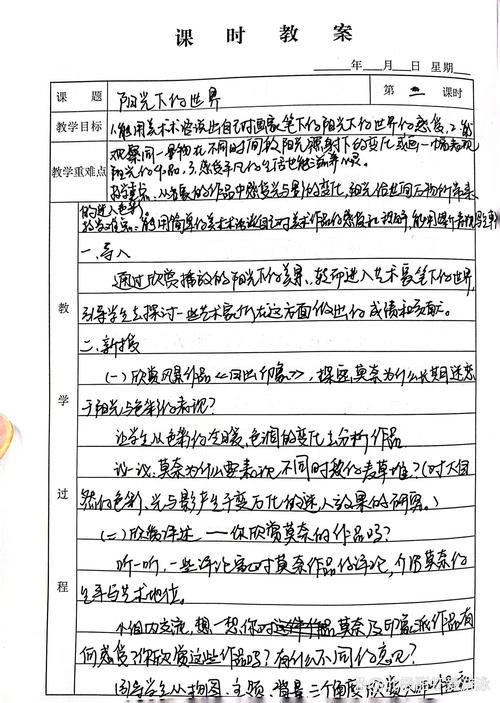 课时教案
年 月 日 星期
课题 阳光下的世界 第 二 课时
教学目标 1、能用美术术语说出自己对画家笔下的阳光下世界的感受。2、能
观察同一景物在不同时间段阳光照射下的变化或画一幅表现
教学重难点 阳光的作品。3、感受平凡的生活也能
教学重点:从名家的作品中感受光与影的变化,阳光给世间万物所带来
的迷人色彩
教学难点:能用简单的美术术语说自己对美术作品的感受和理解,
教学过程
一、导入
通过欣赏播放的阳光下的美景,转而进入艺术家笔下的世界,
引导学生去探讨一些艺术家们在这方面做出的成绩和贡献。
二、新授
(一)欣赏风景作品《日出印象》,探究莫奈为什么长期迷恋
于阳光与色彩的表现?
让学生从色彩的冷暖、色调的变化去分析作品
议一议:莫奈为什么要表现不同时段的麦草堆?(对大自
然的色彩、光与影产生千变万化的迷人效果的研究。)
(二)欣赏评述——你欣赏莫奈的作品吗?
听一听,一些评论家对莫奈作品的评论,介绍莫奈的
生平与艺术地位。
小组内交流,想一想,你对莫奈及印象派作品有
何感受?你欣赏这些作品吗?有什么不同的意见?
引导学生从构图、主题、背景三个角度欣赏